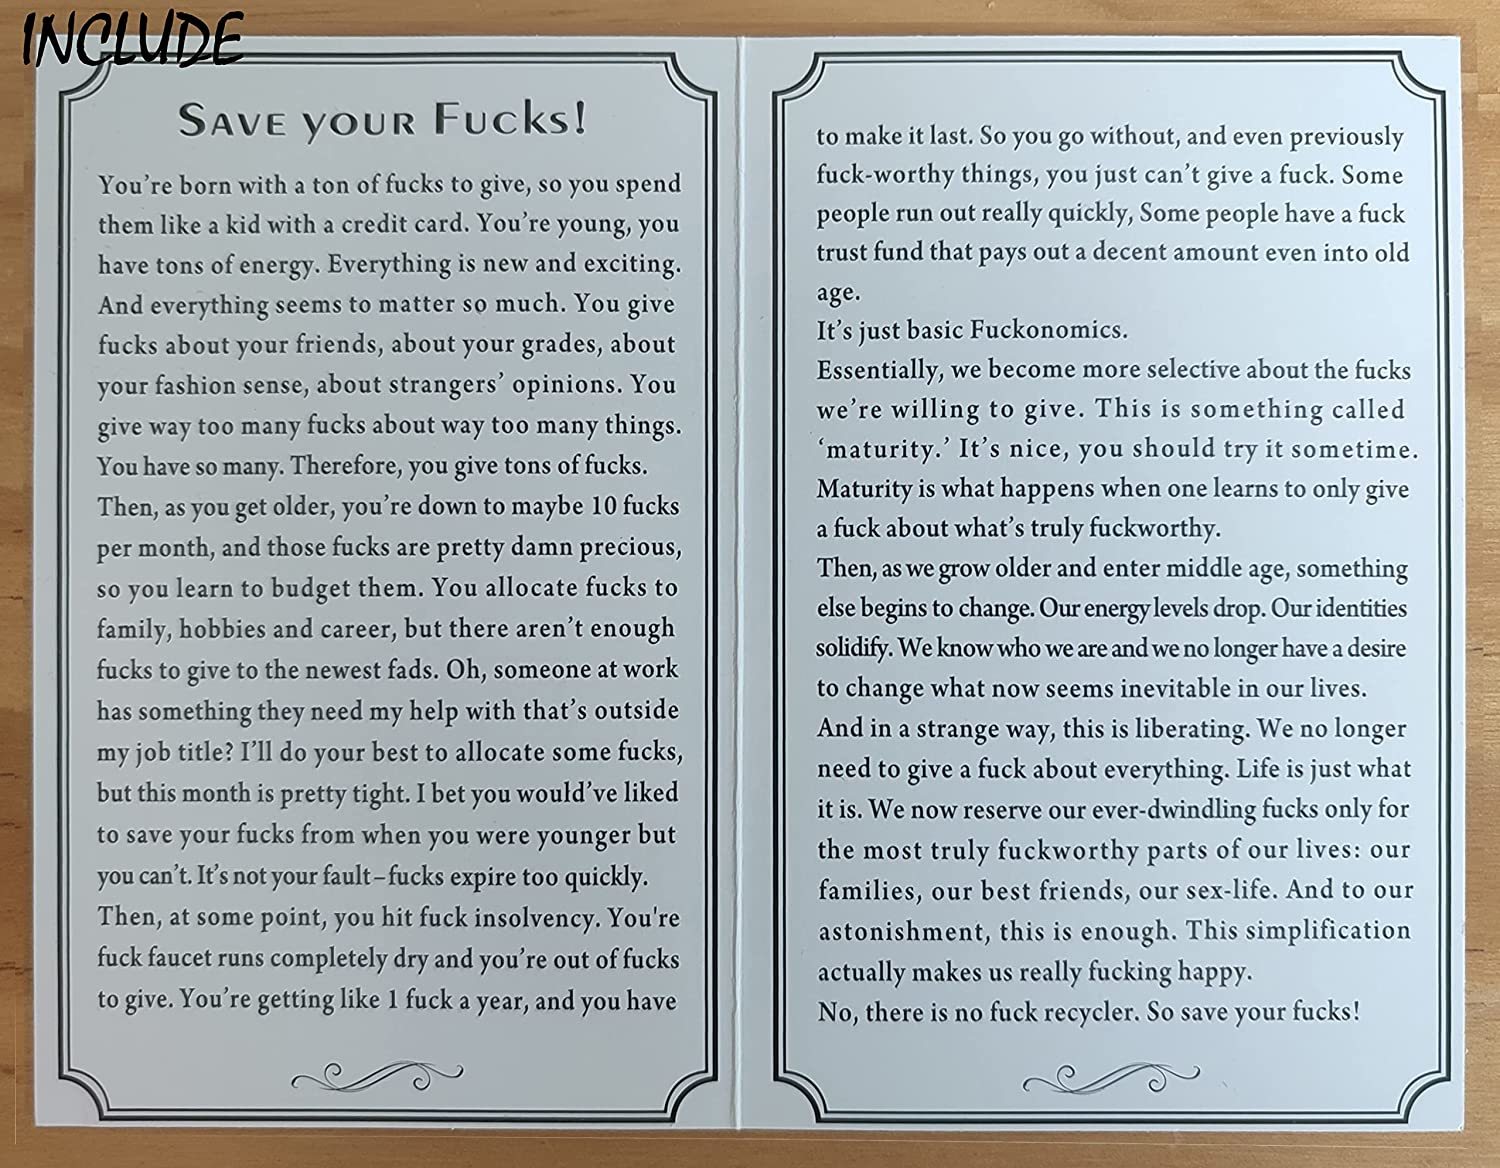 INCLUDE
Save your Fucks!
You're born with a ton of fucks to give, so you spend
them like a kid with a credit card. You're young, you
have tons of energy. Everything is new and exciting.
And everything seems to matter so much. You give
fucks about your friends, about your grades, about
your fashion sense, about strangers' opinions. You
give way too many fucks about way too many things.
You have so many. Therefore, you give tons of fucks.
Then, as you get older, you're down to maybe 10 fucks
per month, and those fucks are pretty damn precious,
so you learn to budget them. You allocate fucks to
family, hobbies and career, but there aren't enough
fucks to give to the newest fads. Oh, someone at work
has something they need my help with that's outside
my job title? I'll do your best to allocate some fucks,
but this month is pretty tight. I bet you would've liked
to save your fucks from when you were younger but
you can't. It's not your fault–fucks expire too quickly.
Then, at some point, you hit fuck insolvency. You're
fuck faucet runs completely dry and you're out of fucks
to give. You're getting like 1 fuck a year, and you have
to make it last. So you go without, and even previously
fuck-worthy things, you just can't give a fuck. Some
people run out really quickly, Some people have a fuck
trust fund that pays out a decent amount even into old
age.
It's just basic Fuckonomics.
Essentially, we become more selective about the fucks
we're willing to give. This is something called
'maturity.' It's nice, you should try it sometime.
Maturity is what happens when one learns to only give
a fuck about what's truly fuckworthy.
Then, as we grow older and enter middle age, something
else begins to change. Our energy levels drop. Our identities
solidify. We know who we are and we no longer have a desire
to change what now seems inevitable in our lives.
And in a strange way, this is liberating. We no longer
need to give a fuck about everything. Life is just what
it is. We now reserve our ever-dwindling fucks only for
the most truly fuckworthy parts of our lives: our
families, our best friends, our sex-life. And to our
astonishment, this is enough. This simplification
actually makes us really fucking happy.
No, there is no fuck recycler. So save your fucks!